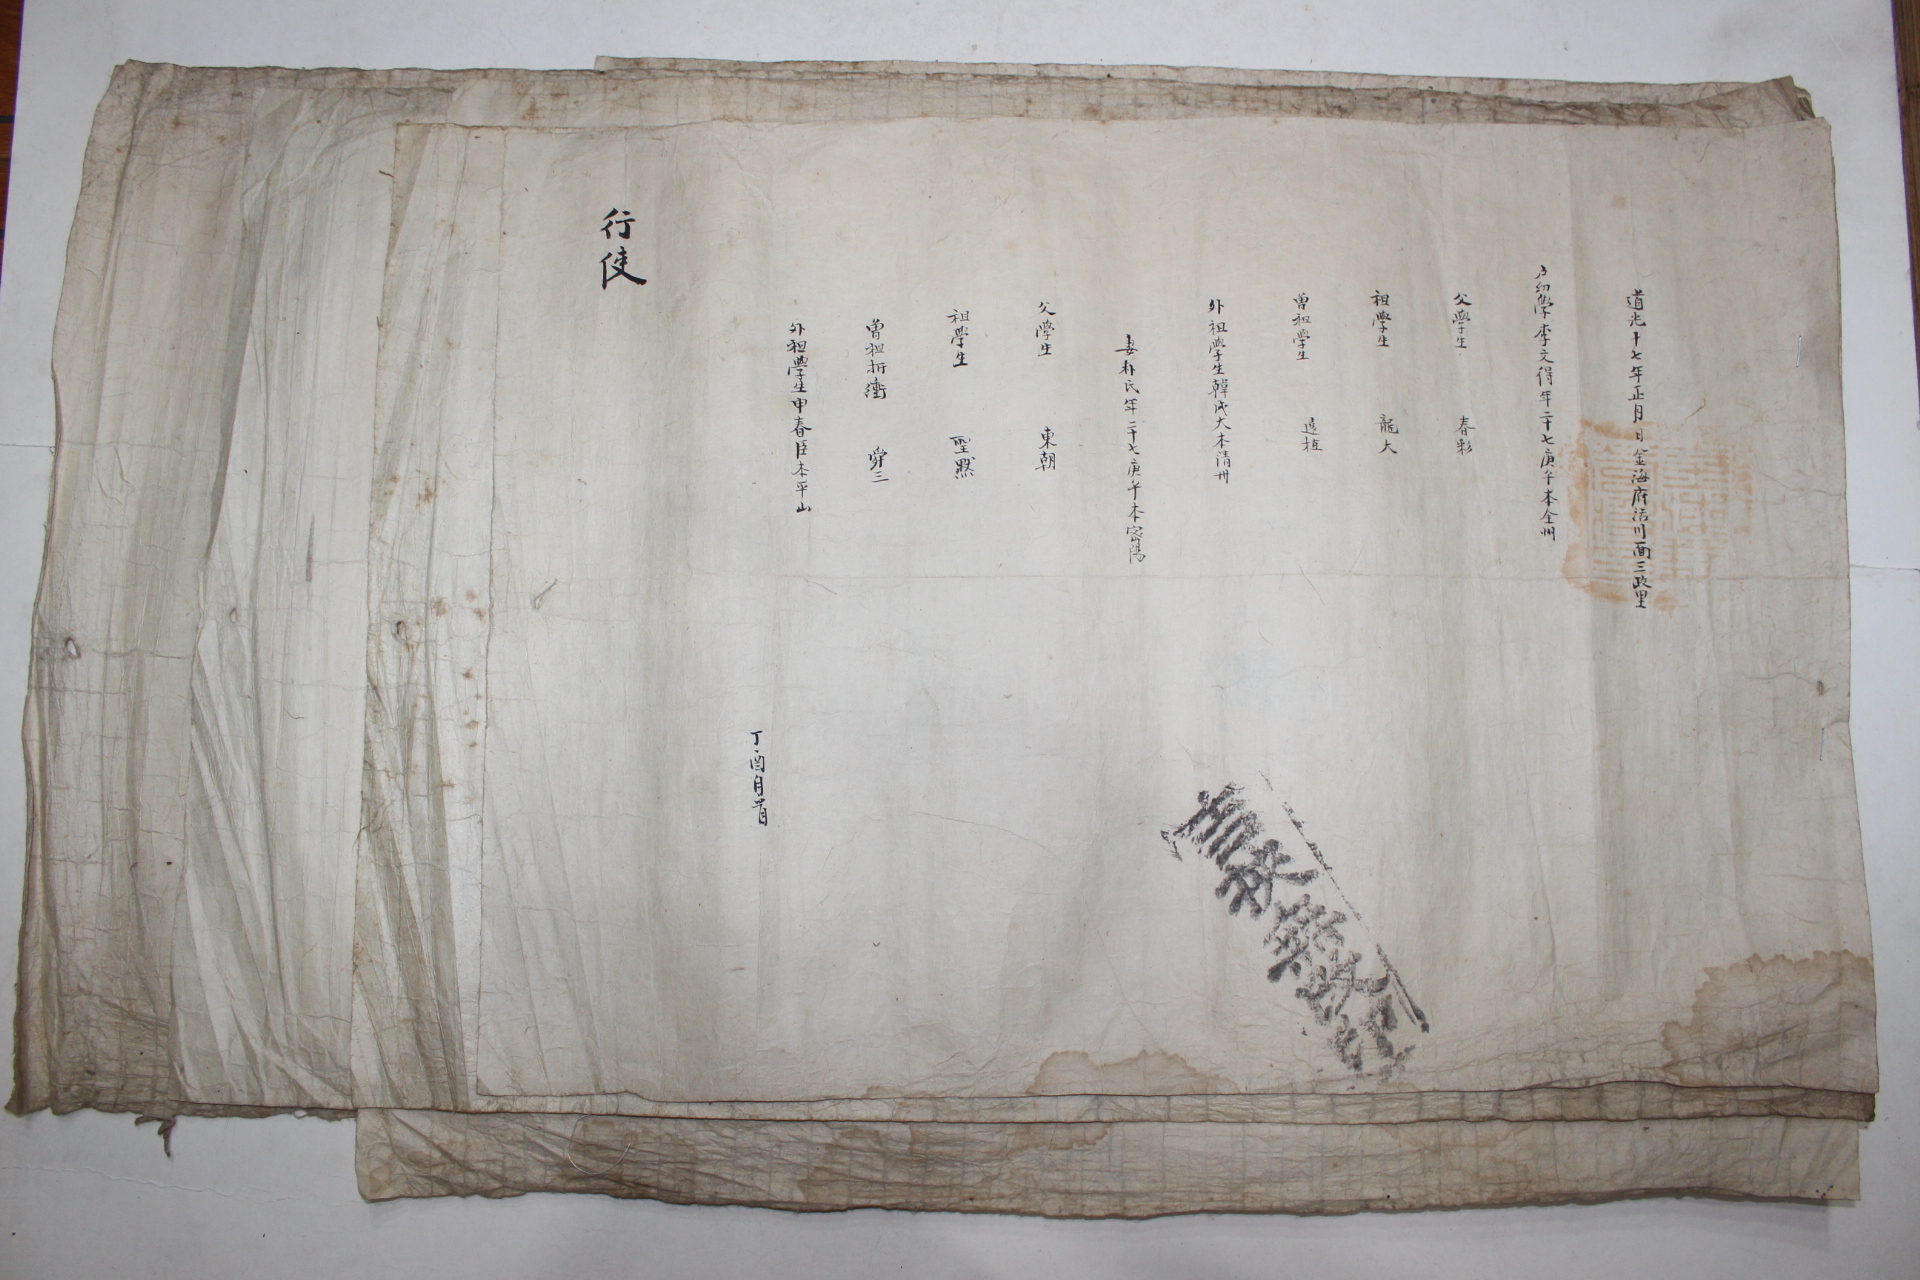 道光十七年正月 日金海府活川面三政里
戶幼學李文得年二十七庚午本全州
父學生 春彩
祖學生 龍大
曾祖學生 遠植
外祖學生韓成大本清州
妻朴氏年二十七庚午本密陽
父學生 東朝
祖學生 聖默
曾祖折衝 舜三
外祖學生申春臣本平山
丁酉
行使